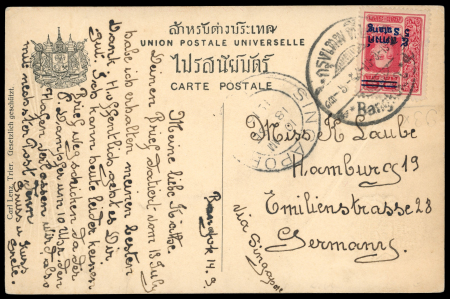 สำหรับต่างประเทศ
UNION POSTALE UNIVERSELLE
ไปรสนียบัตร์
CARTE POSTALE
Carl Lenz, Trier. Gesetzlich geschützt.
Bangkok 14. 9.
Meine liebe Käthe
Deinen Brief datiert vom 13 July
habe ich erhalten meinen besten
Dank Hoffentlich geht es Dir
gut. Ich kann heute leider keinen
Brief wegschicken da der
Dampfer um 10 Uhr den
Hafen verlassen wird also
mit nächster Post mehr
Gruss u Kuss
Miss K Laube
Hamburg 19
Emilienstrasse 28
Germany.
via Singapore
SINGAPORE
Bangkok
5 Satang